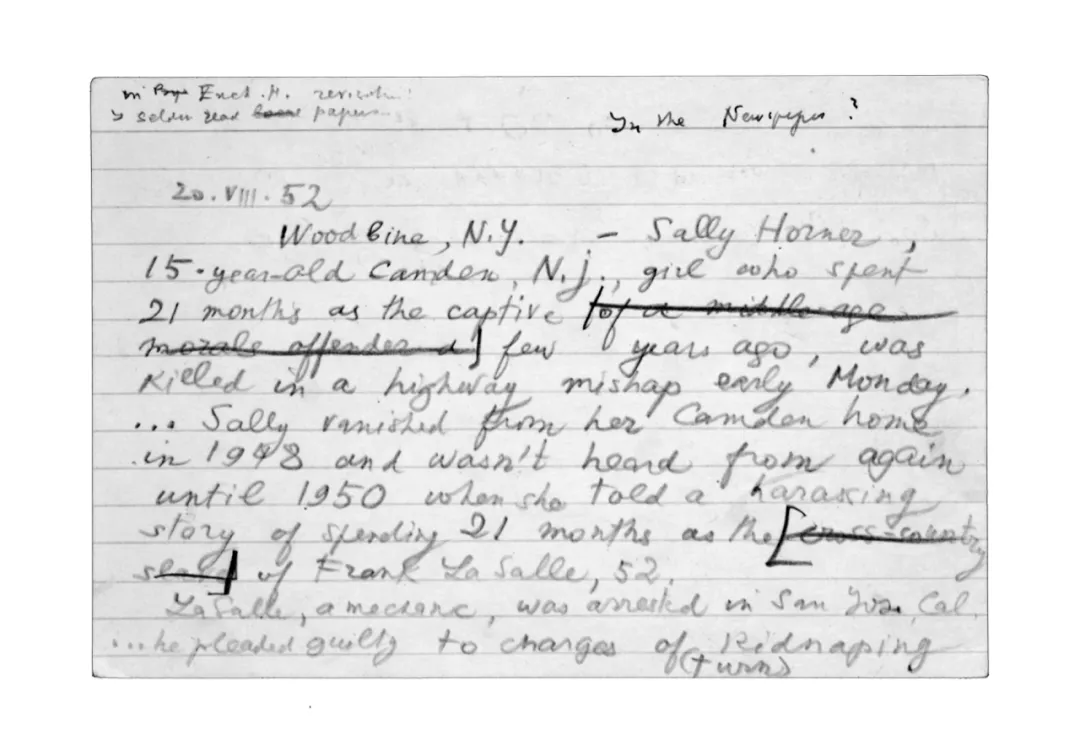 in Page Enct. H. revisited
→ seldom read papers
In the Newspaper?
20.VIII.52
Woodbine, N.Y. – Sally Horner,
15-year-old Camden, N.J., girl who spent
21 months as the captive [of a middle-age
morals offender a] few years ago, was
killed in a highway mishap early Monday.
... Sally vanished from her Camden home
in 1948 and wasn't heard from again
until 1950 when she told a harassing
story of spending 21 months as the [cross-country
slave] of Frank La Salle, 52.
LaSalle, a mechanic, was arrested in San Jose, Cal.
...he pleaded guilty to charges of kidnaping
(turn)